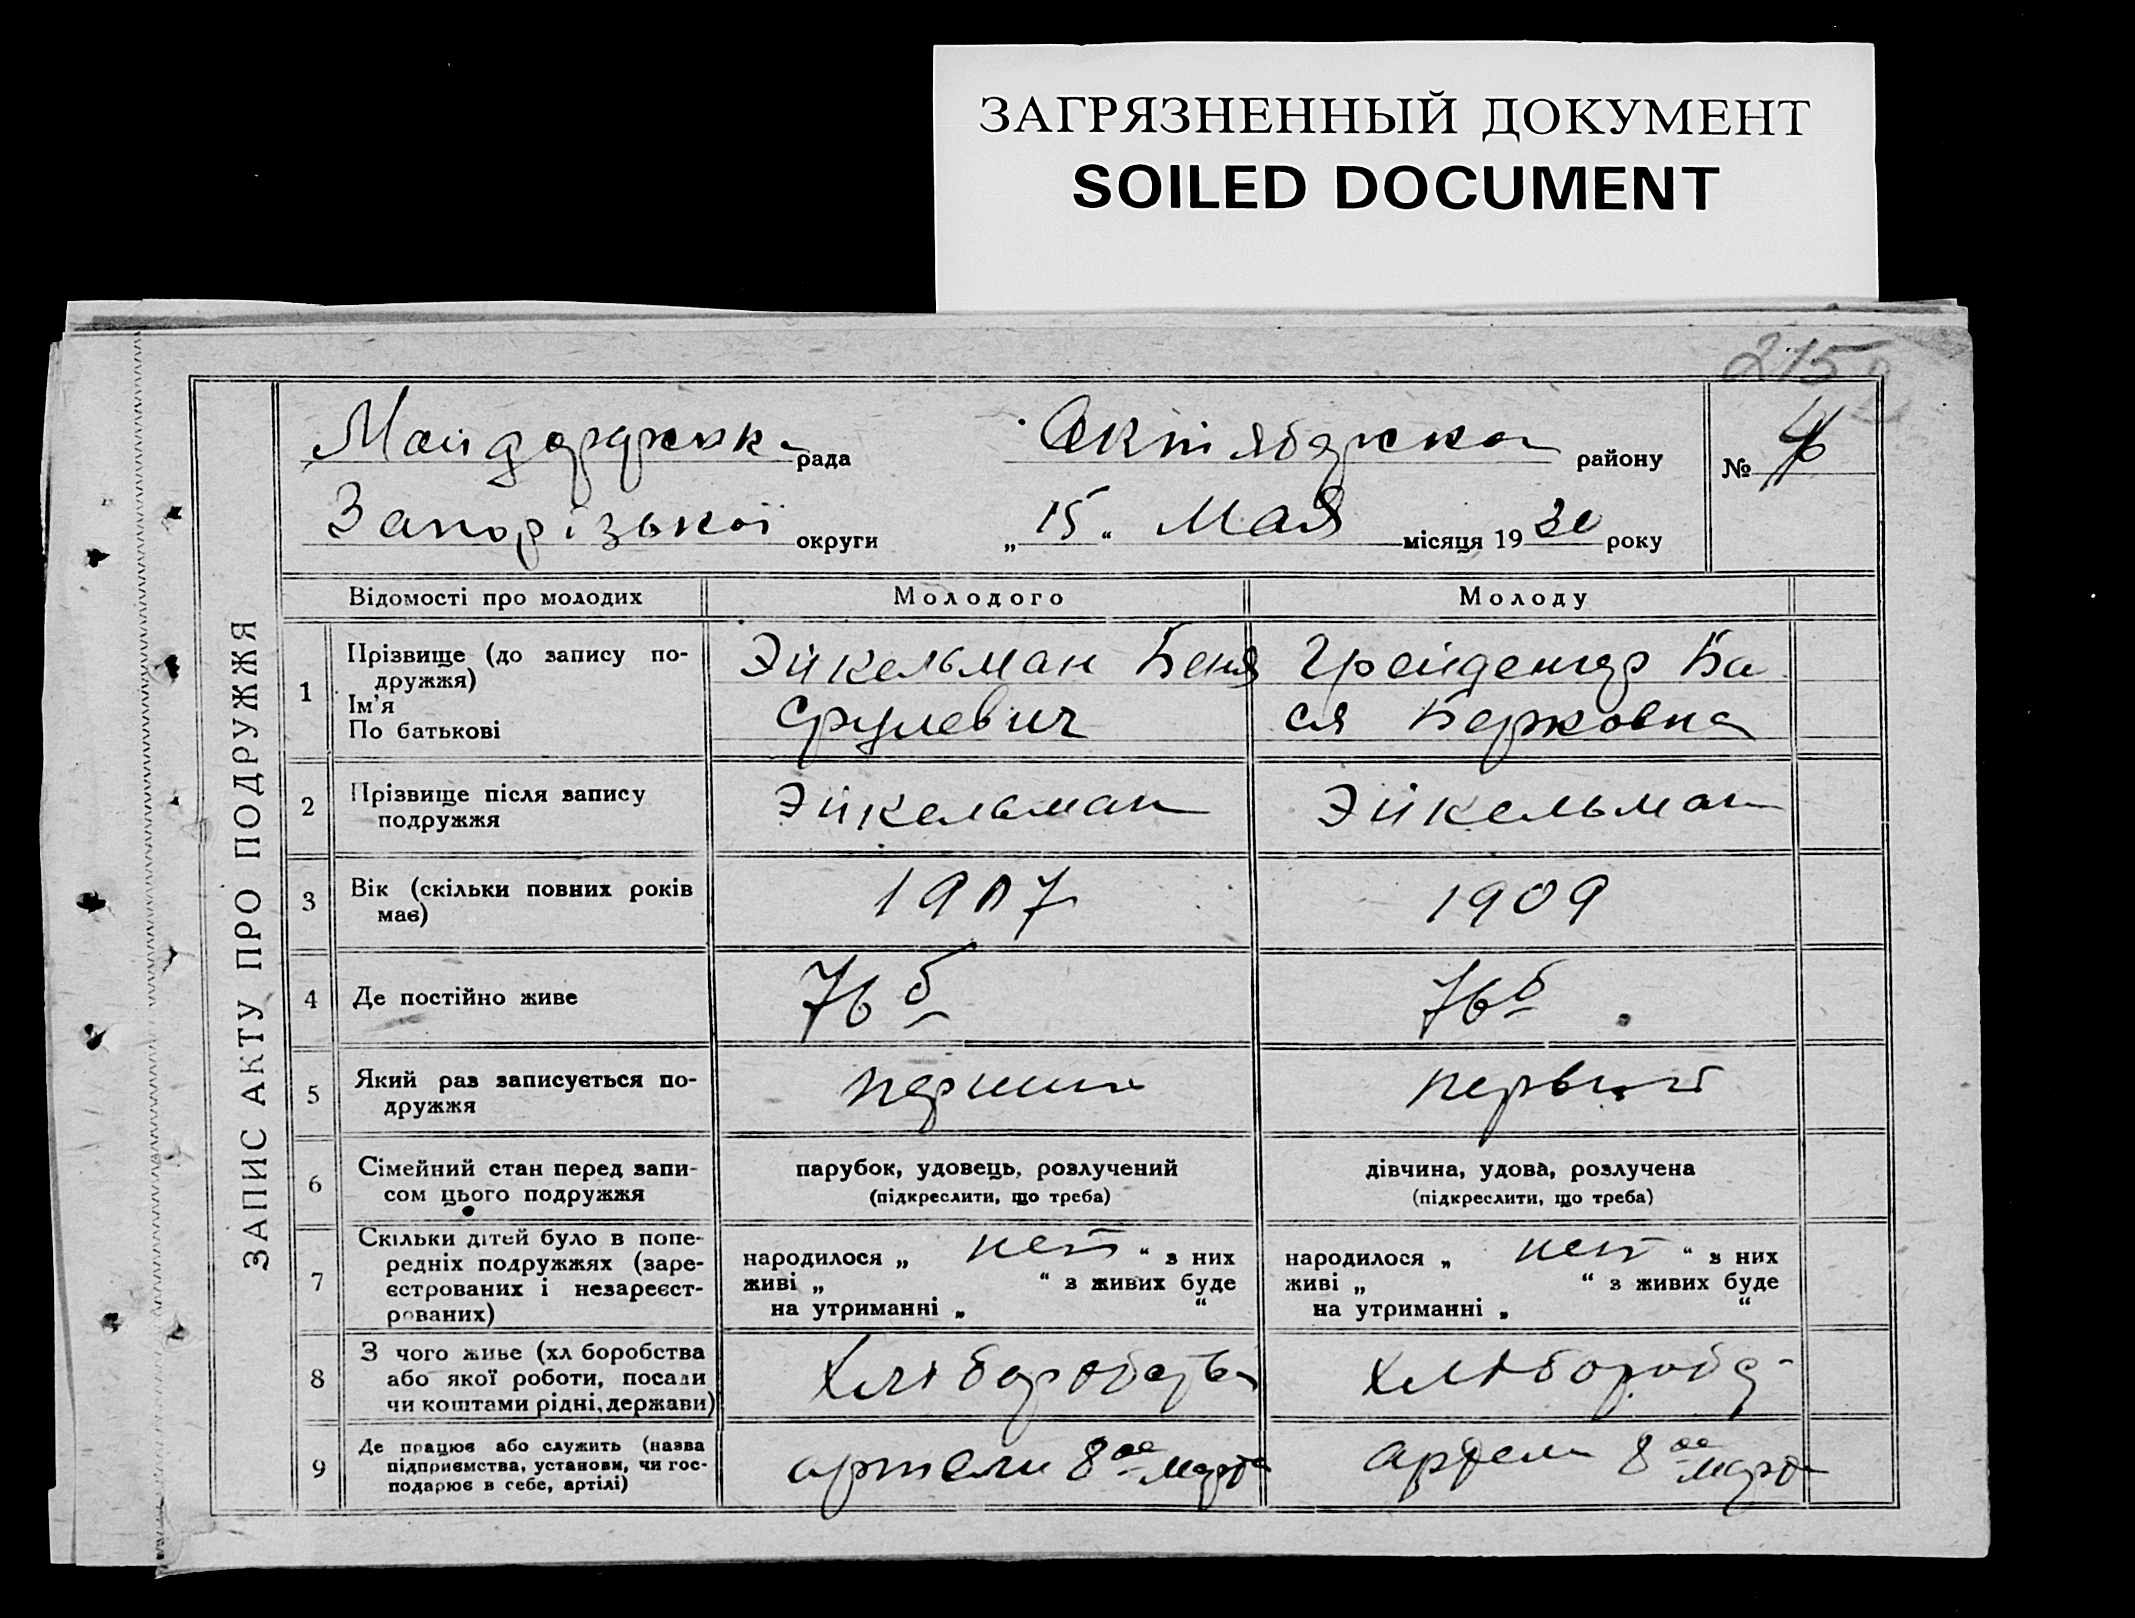 ЗАГРЯЗНЕННЫЙ ДОКУМЕНТ
SOILED DOCUMENT
215
ЗАПИС АКТУ ПРО ПОДРУЖЖЯ
рада
Октябрська району
№
Запорізької округи
„15“ Мая місяця 1930 року
Відомості про молодих
Молодого
Молоду
1
Прізвище (до запису по-
дружжя)
Ім'я
По батькові
Эйкельман Беня
Срулевич
Ба
ся Берковна
2
Прізвище після запису
подружжя
Эйкельман
Эйкельман
3
Вік (скільки повних років
має)
1907
1909
4
Де постійно живе
76
76
5
Який раз записується по-
дружжя
первый
6
Сімейний стан перед запи-
сом цього подружжя
парубок, удовець, розлучений
(підкреслити, що треба)
дівчина, удова, розлучена
(підкреслити, що треба)
7
Скільки дітей було в попе-
редніх подружжях (заре-
єстрованих і незареєст-
рованих)
народилося „ нет “ з них
живі „ “ з живих буде
на утриманні „ “
народилося „ нет “ з них
живі „ “ з живих буде
на утриманні „ “
8
З чого живе (хліборобства
або якої роботи, посади
чи коштами рідні, держави)
9
Де працює або служить (назва
підприємства, установи, чи гос-
подарює в себе, артілі)
артели 8ое марта
артели 8ое марта